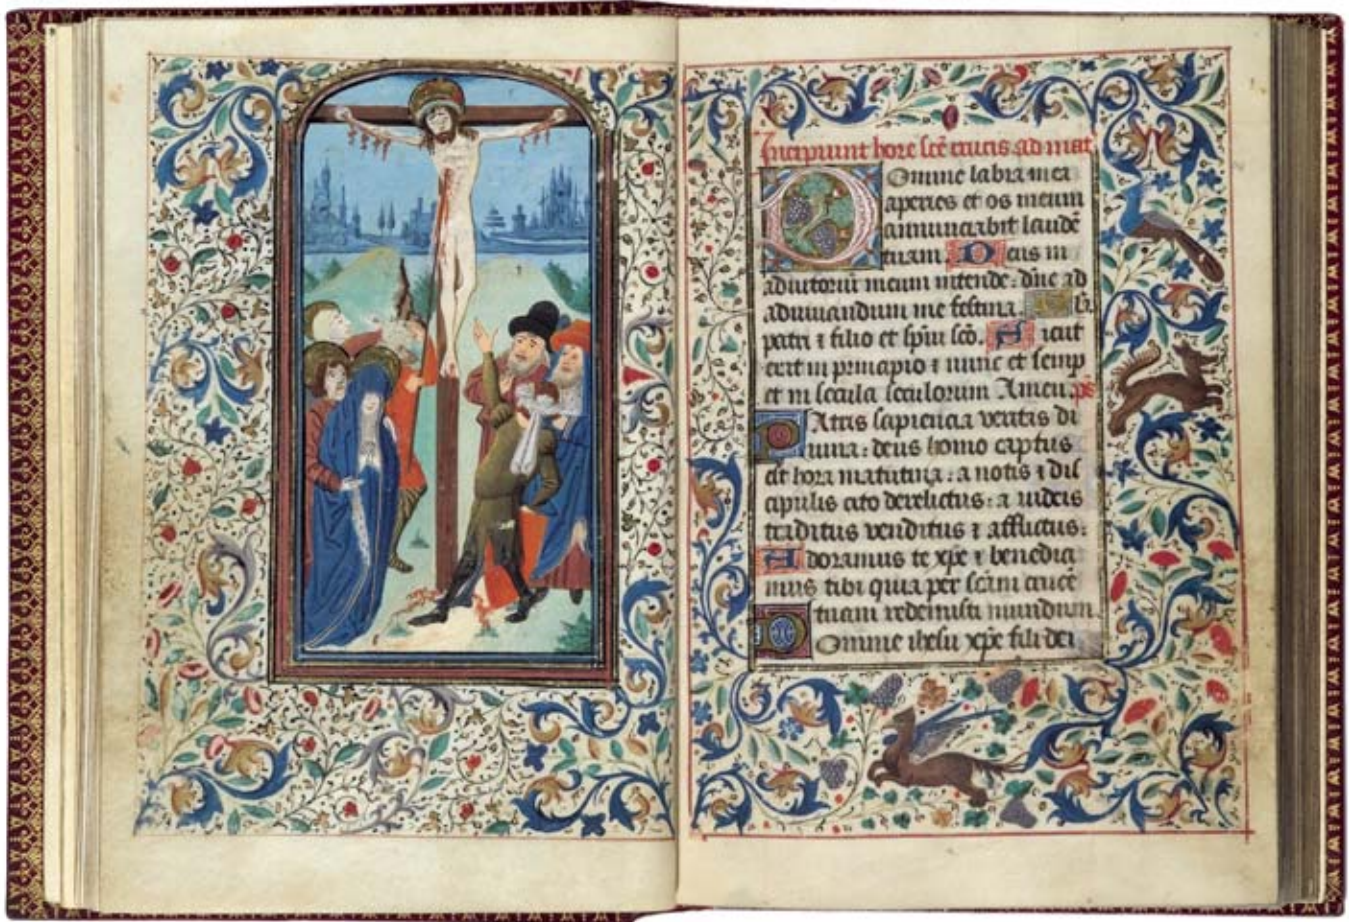 Incipiunt hore sce crucis ad mat
Domine labia mea
aperies et os meum
annunciabit laudē
tuam. Deus in
adiutoriū meum intende. dn̄e ad
adiuuandum me festina. Gl̄a
patri ⁊ filio et spūi scō. Sicut
erat in principio ⁊ nunc et semp
et in secula seculorum Amen. ps̄
Patris sapiencia veritas di
uina: deus homo captus
est hora matutina: a notis ⁊ dis
cipulis cito derelictus: a iudeis
traditus venditus ⁊ afflictus:
Adoramus te xp̄e ⁊ benedici
mus tibi quia per scām crucē
tuam redemisti mundum
Domine ihesu xp̄e fili dei